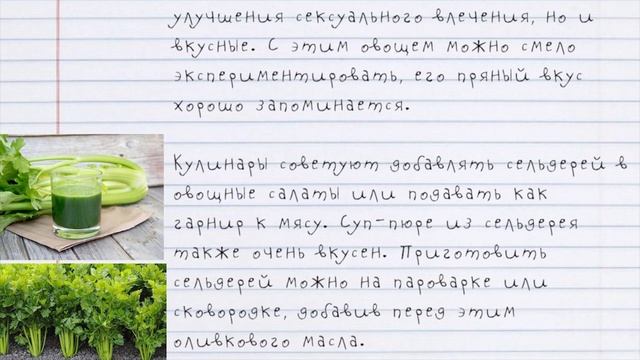 улучшения сексуального влечения, но и
вкусные. С этим овощем можно смело
экспериментировать, его пряный вкус
хорошо запоминается.
Кулинары советуют добавлять сельдерей в
овощные салаты или подавать как
гарнир к мясу. Суп-пюре из сельдерея
также очень вкусен. Приготовить
сельдерей можно на пароварке или
сковородке, добавив перед этим
оливкового масла.